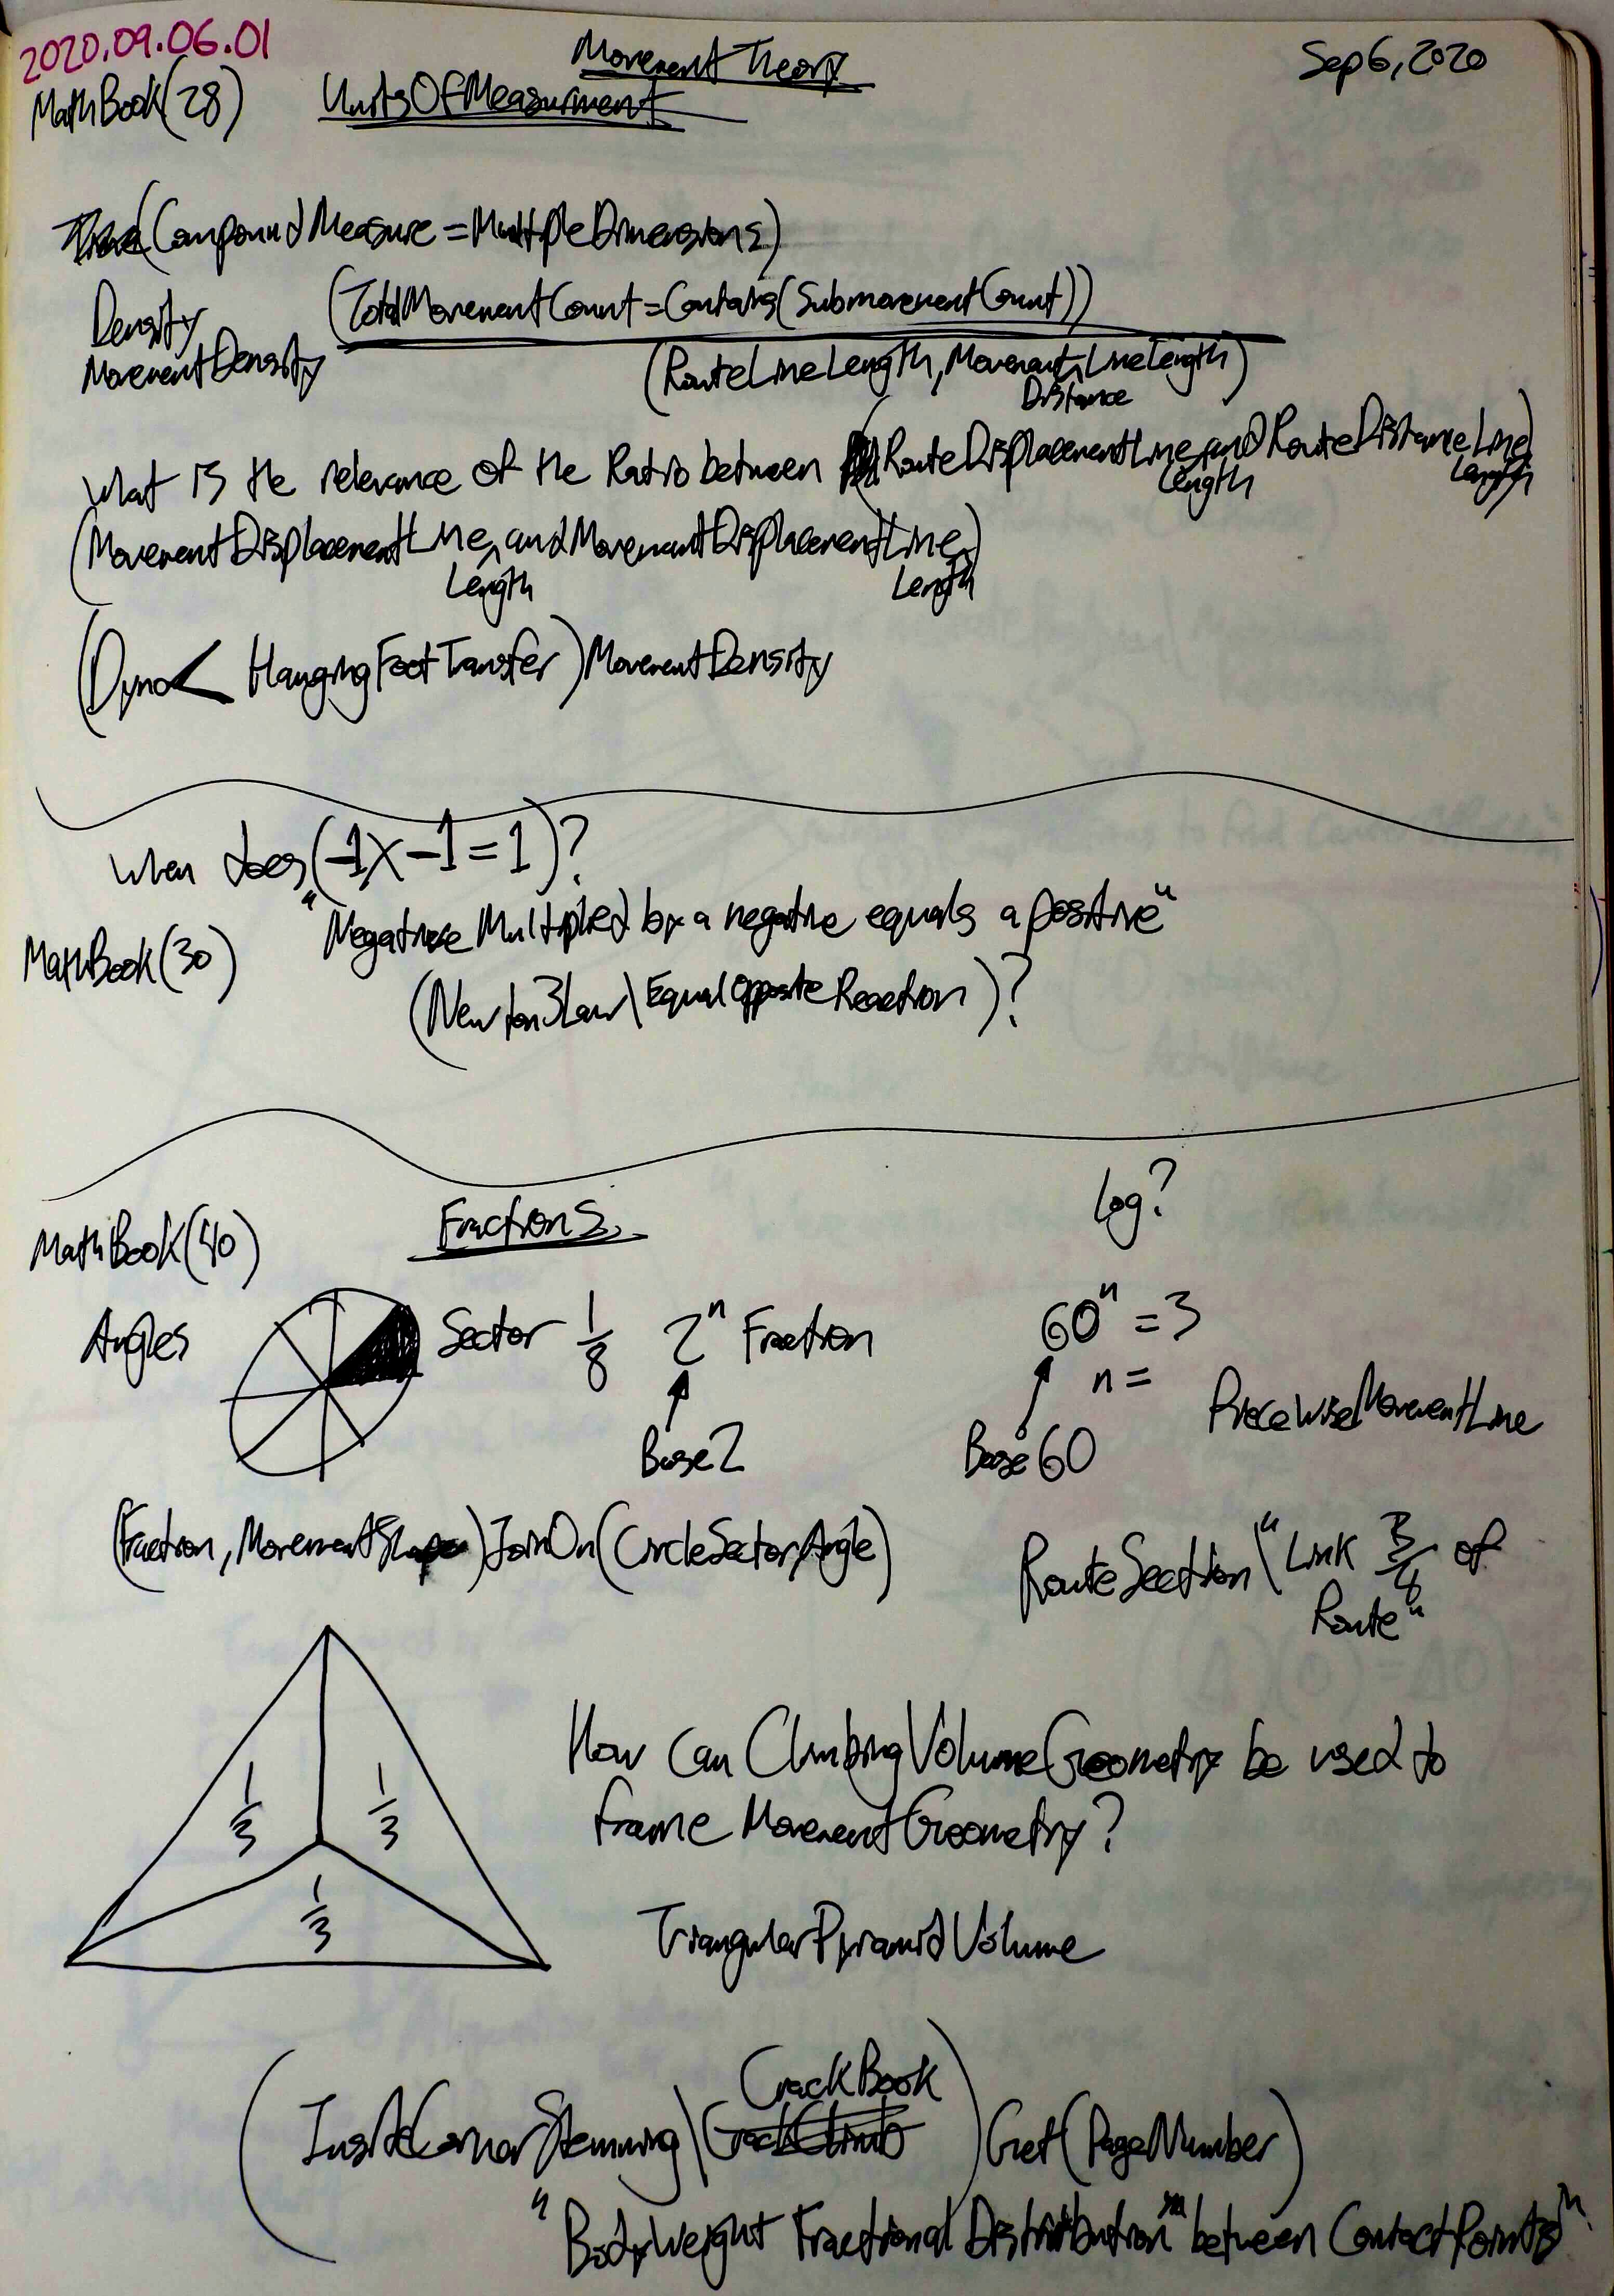 2020.09.06.01
Movement Theory
Sep 6, 2020
MathBook(28)
UnitsOfMeasurment
(CompoundMeasure = MultipleDimensions)
Density
MovementDensity
(TotalMovementCount = Contains(SubmovementCount))
(RouteLineLength, MovementLineLength)
Distance
What is the relevance of the Ratio between (RouteDisplacementLine and RouteDistanceLine
Length
Length
(MovementDisplacementLine, and MovementDisplacementLine)
Length
Length
(Dyno < HangingFootTransfer)MovementDensity
When does (-1 x -1 = 1)?
"Negative Multiplied by a negative equals a positive"
MathBook(30)
(Newton3Law\EqualOppositeReaction)?
Log?
MathBook(40)
Fractions
Angles
Sector 1/8
2ⁿ Fraction
Base2
60ⁿ = 3
n =
Base 60
PieceWiseMovementLine
(Fraction, MovementShape)JoinOn(CircleSector, Angle)
RouteSection\"Link of
Route"
1/3
1/3
1/3
How can ClimbingVolumeGeometry be used to
frame MovementGeometry?
TriangularPyramidVolume
CrackBook
(InsideCornerStemming\CrackClimb)Get(PageNumber)
"BodyWeight Fractional Distribution" between ContactPoints"